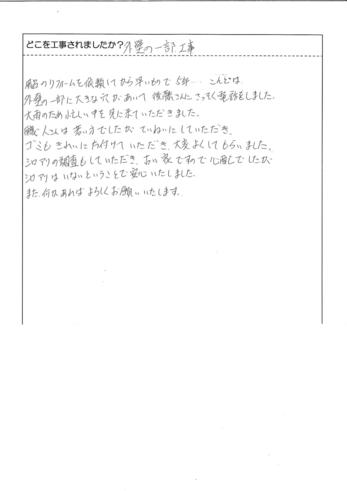 どこを工事されましたか?外壁の一部工事
のリフォームを依頼してから早いもので5年… こんどは
外壁の一部に大きな穴があいて 後藤さんに さっそく電話をしました。
大雨のため忙しい中を見に来ていただきました。
職人さんは 若い方でしたが ていねいにしていただき、
ゴミも きれいに片付けて いただき、大変よくしてもらいました。
シロアリの調査もしていただき、古い家ですので心配でしたが
シロアリはいないということで安心いたしました。
また何かあればよろしくお願いいたします。